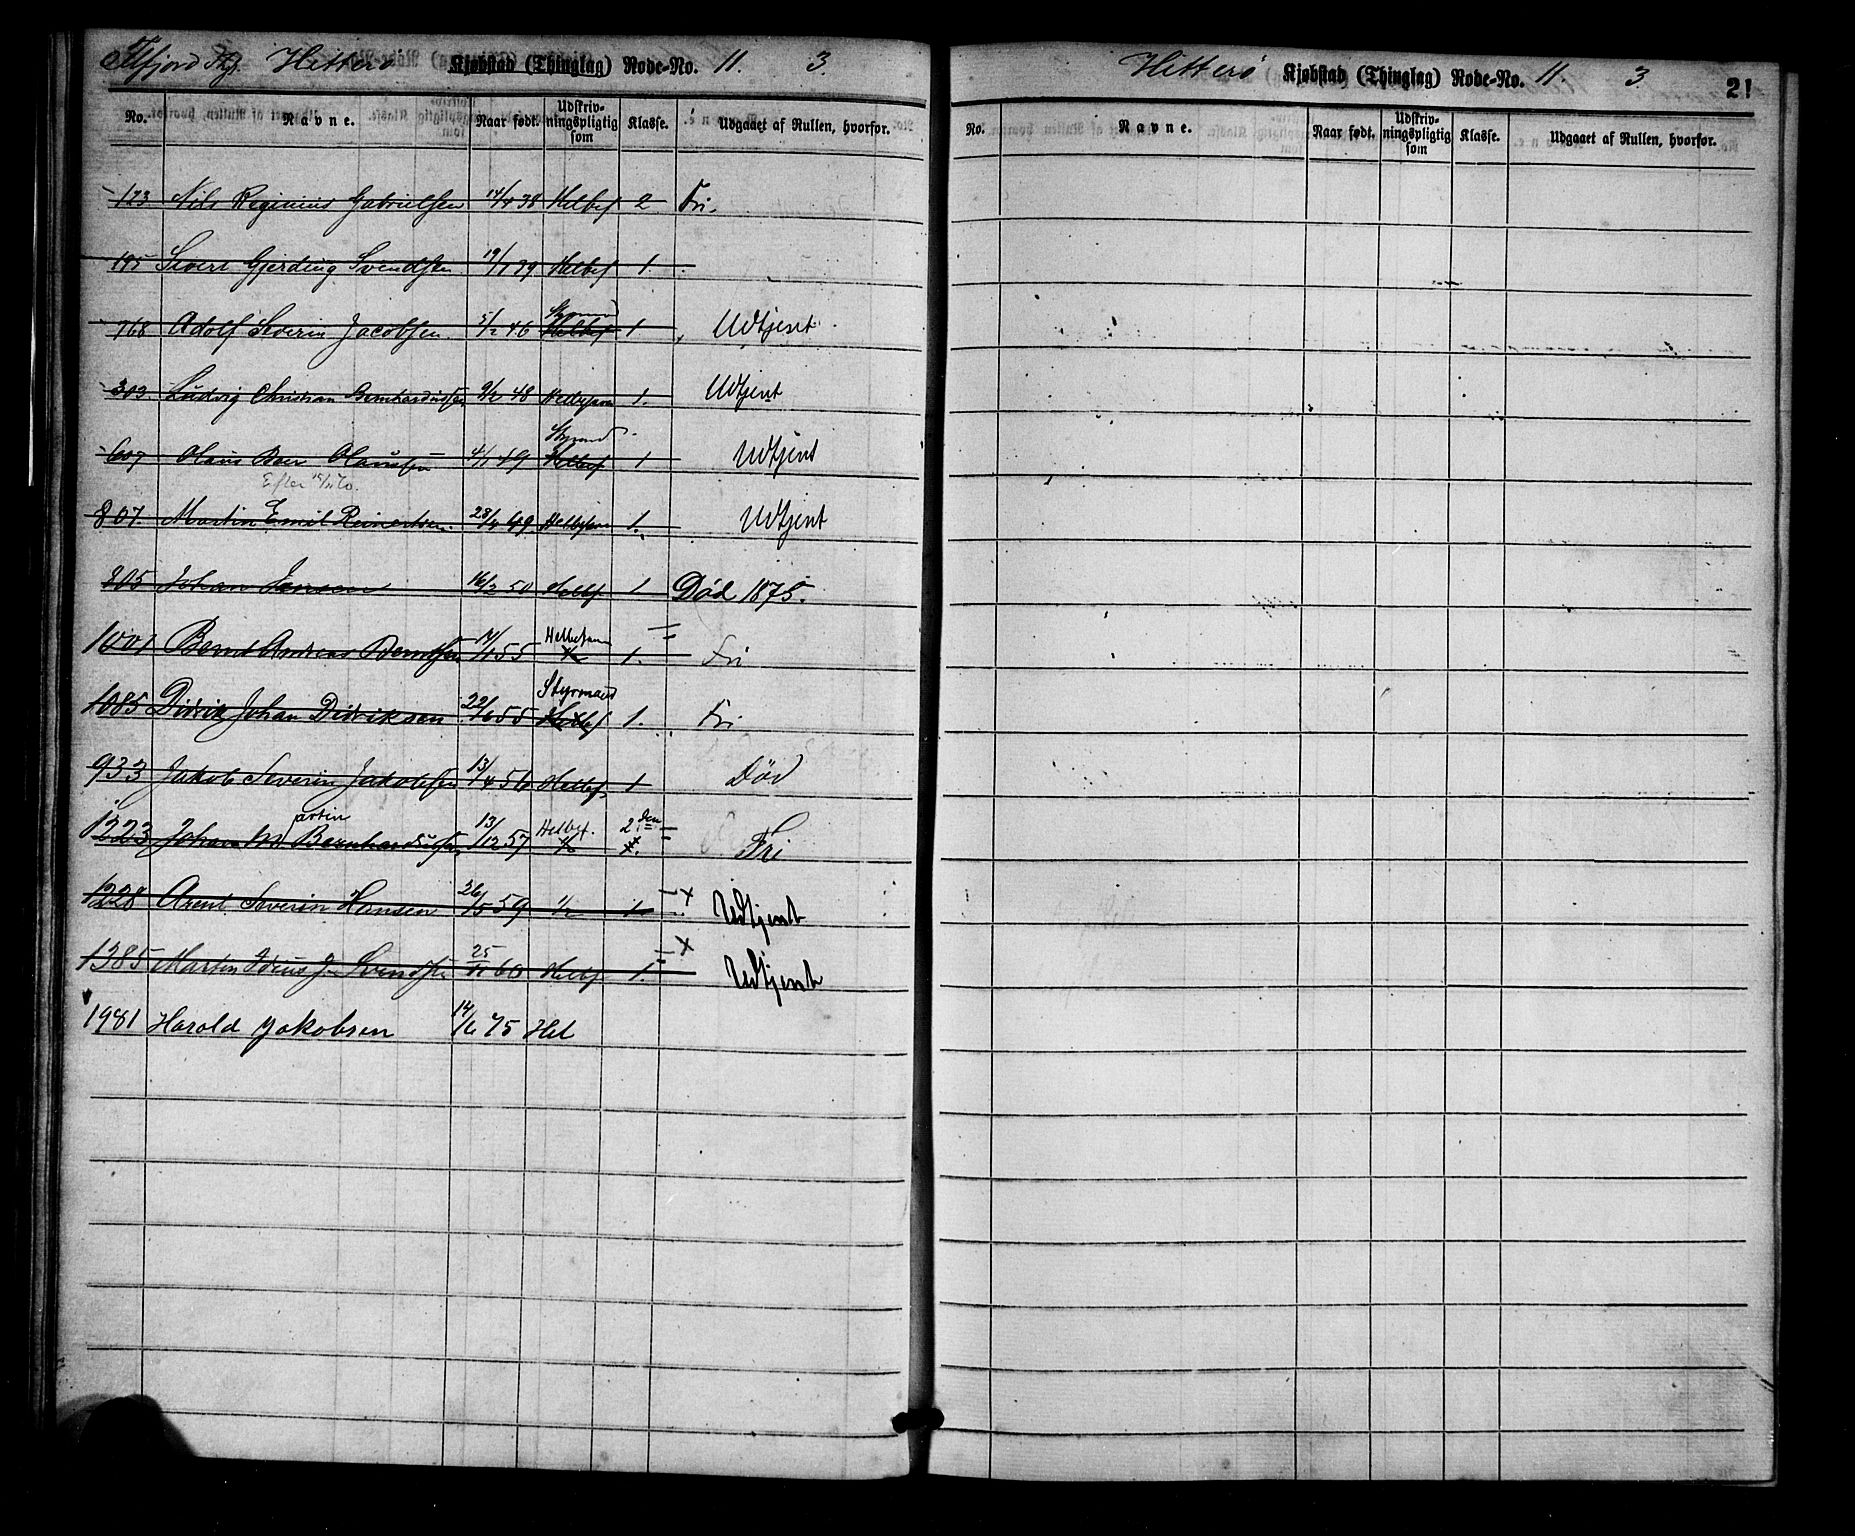 Hitterö Kjøbstad (Thinglag) Rode-No. 11. 3.
No. Navne. Naar født. Udskrivningspligtig som Klasse. Udgaaet af Rullen, hvorfor.
123 Nils Reginius Gabrielsen 14/4 38 Helbef 2 Fri.
195 Sivert Gjerding Svendsen 19/1 39 Helbef 1.
168 Adolf Severin Jacobsen 5/2 46 Helbef 1 Udtjent
303 Ludvig Christian Bernhardusen 9/2 48 1. Udtjent
607 Olaus Olaussen 4/1 49 Helbef 1 Udtjent
Efter
807. Martin Emil Reinertsen. 28/4 49 1. Udtjent
305 Johan Jensen 16/2 50 Helbf 1 Død 1875.
1001 Bernt Andreas Berntsen 14/1 55 Helbefaren 1. Fri
1085 Didrik Johan Didriksen 22/6 55 Styrmand Helbef 1. Fri
933 Jakob Severin Jakobsen 13/4 56 Helbef 1 Død
1223 Johan Martin Bernhardusen 13/12 57 Helbef. 2den Fri
1228 Arent Severin Hansen 26/5 59 1/2 1. X Udtjent
1385 Martin Svendsen 25/ 60 Helbf 1. X Udtjent
1981 Harald Jakobsen 14/6 75 Hel
Hitterö Kjøbstad (Thinglag) Rode-No. 11. 3 21
No. Navne. Naar født. Udskrivningspligtig som Klasse. Udgaaet af Rullen, hvorfor.